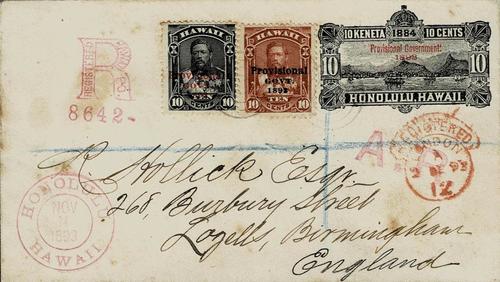 REGISTERED
R
8642
HAWAII
Provisional
GOVT.
10 CENTS 10
TEN
HAWAII
Provisional
GOVT.
1893
10 CENTS 10
TEN
10 KENETA 1884 10 CENTS
Provisional Government
1893
10 10
HONOLULU, HAWAII.
REGISTERED
LONDON
12
A
HONOLULU
NOV
1893
HAWAII
R. Hollick Esqr.
268, Burbury Street
Lozells, Birmingham
England